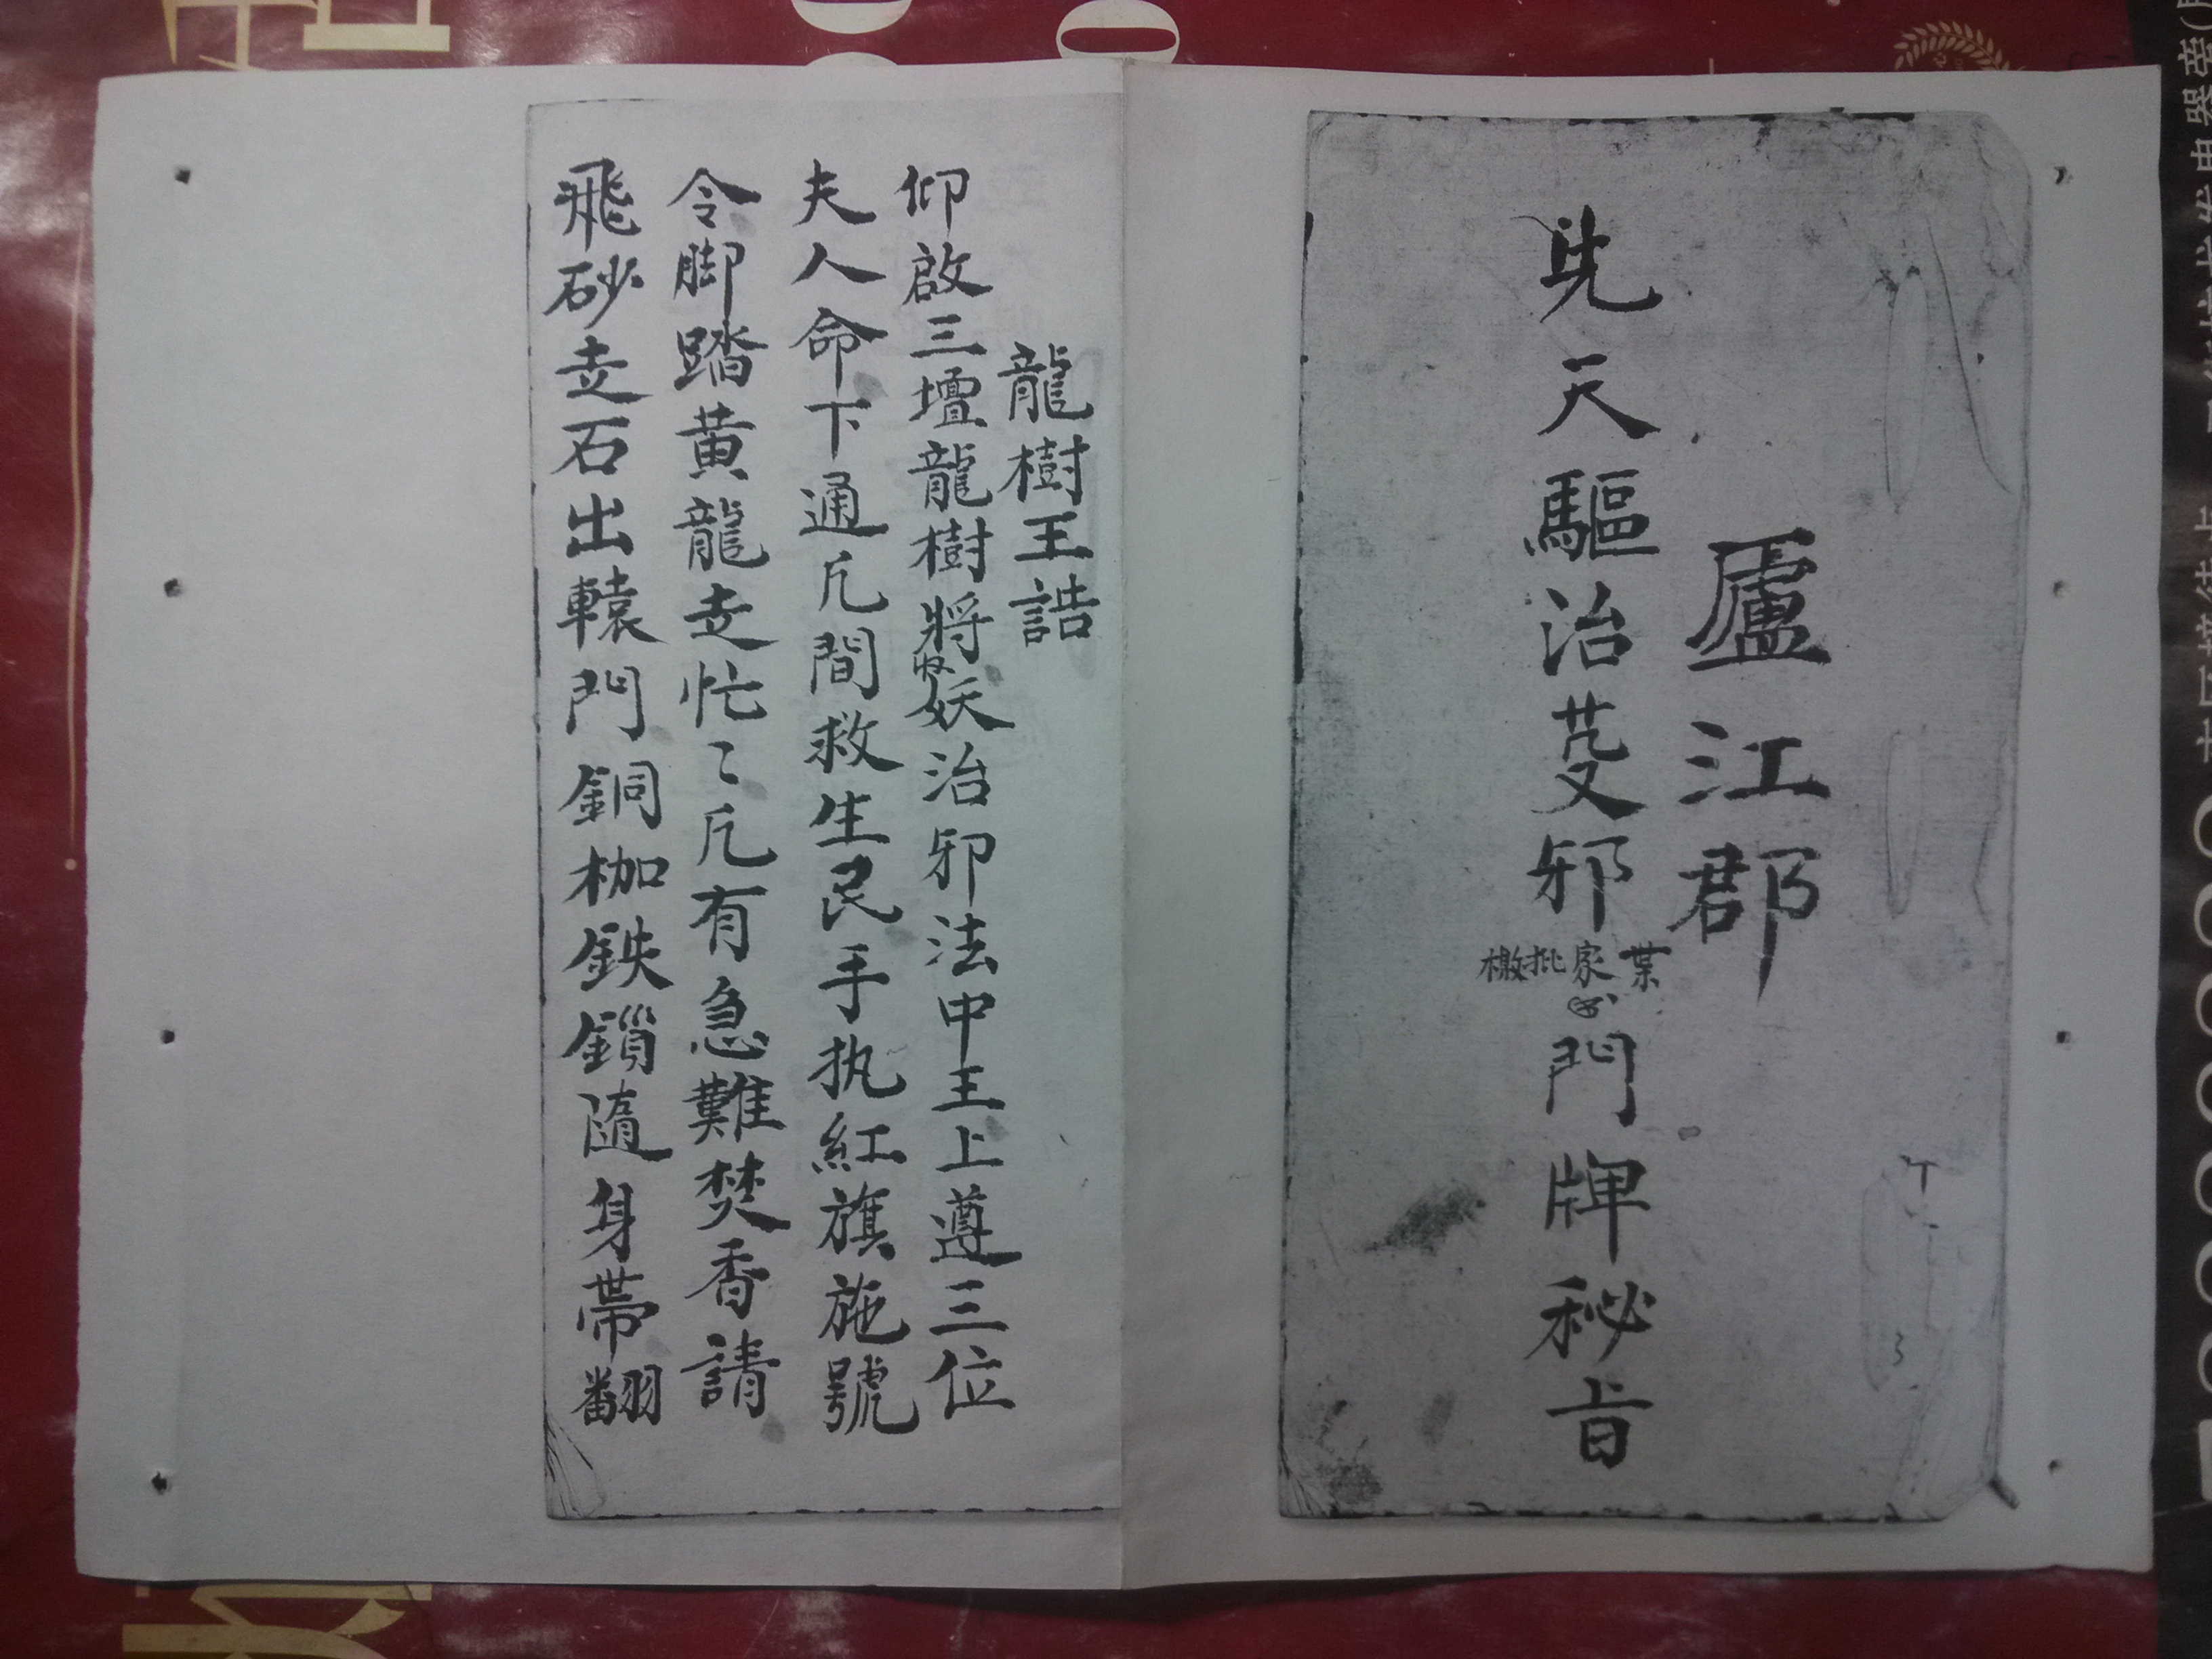 廬江郡
先天驅治邪
葉家批檄
門牌秘旨
龍樹王誥
仰啟三壇龍樹將收妖治邪法中王上遵三位
夫人命下通凢間救生民手执紅旗施號
令脚踏黄龍走忙〻凢有急難焚香請
飛砂走石出轅門銅枷鉄鎖隨身帶翻